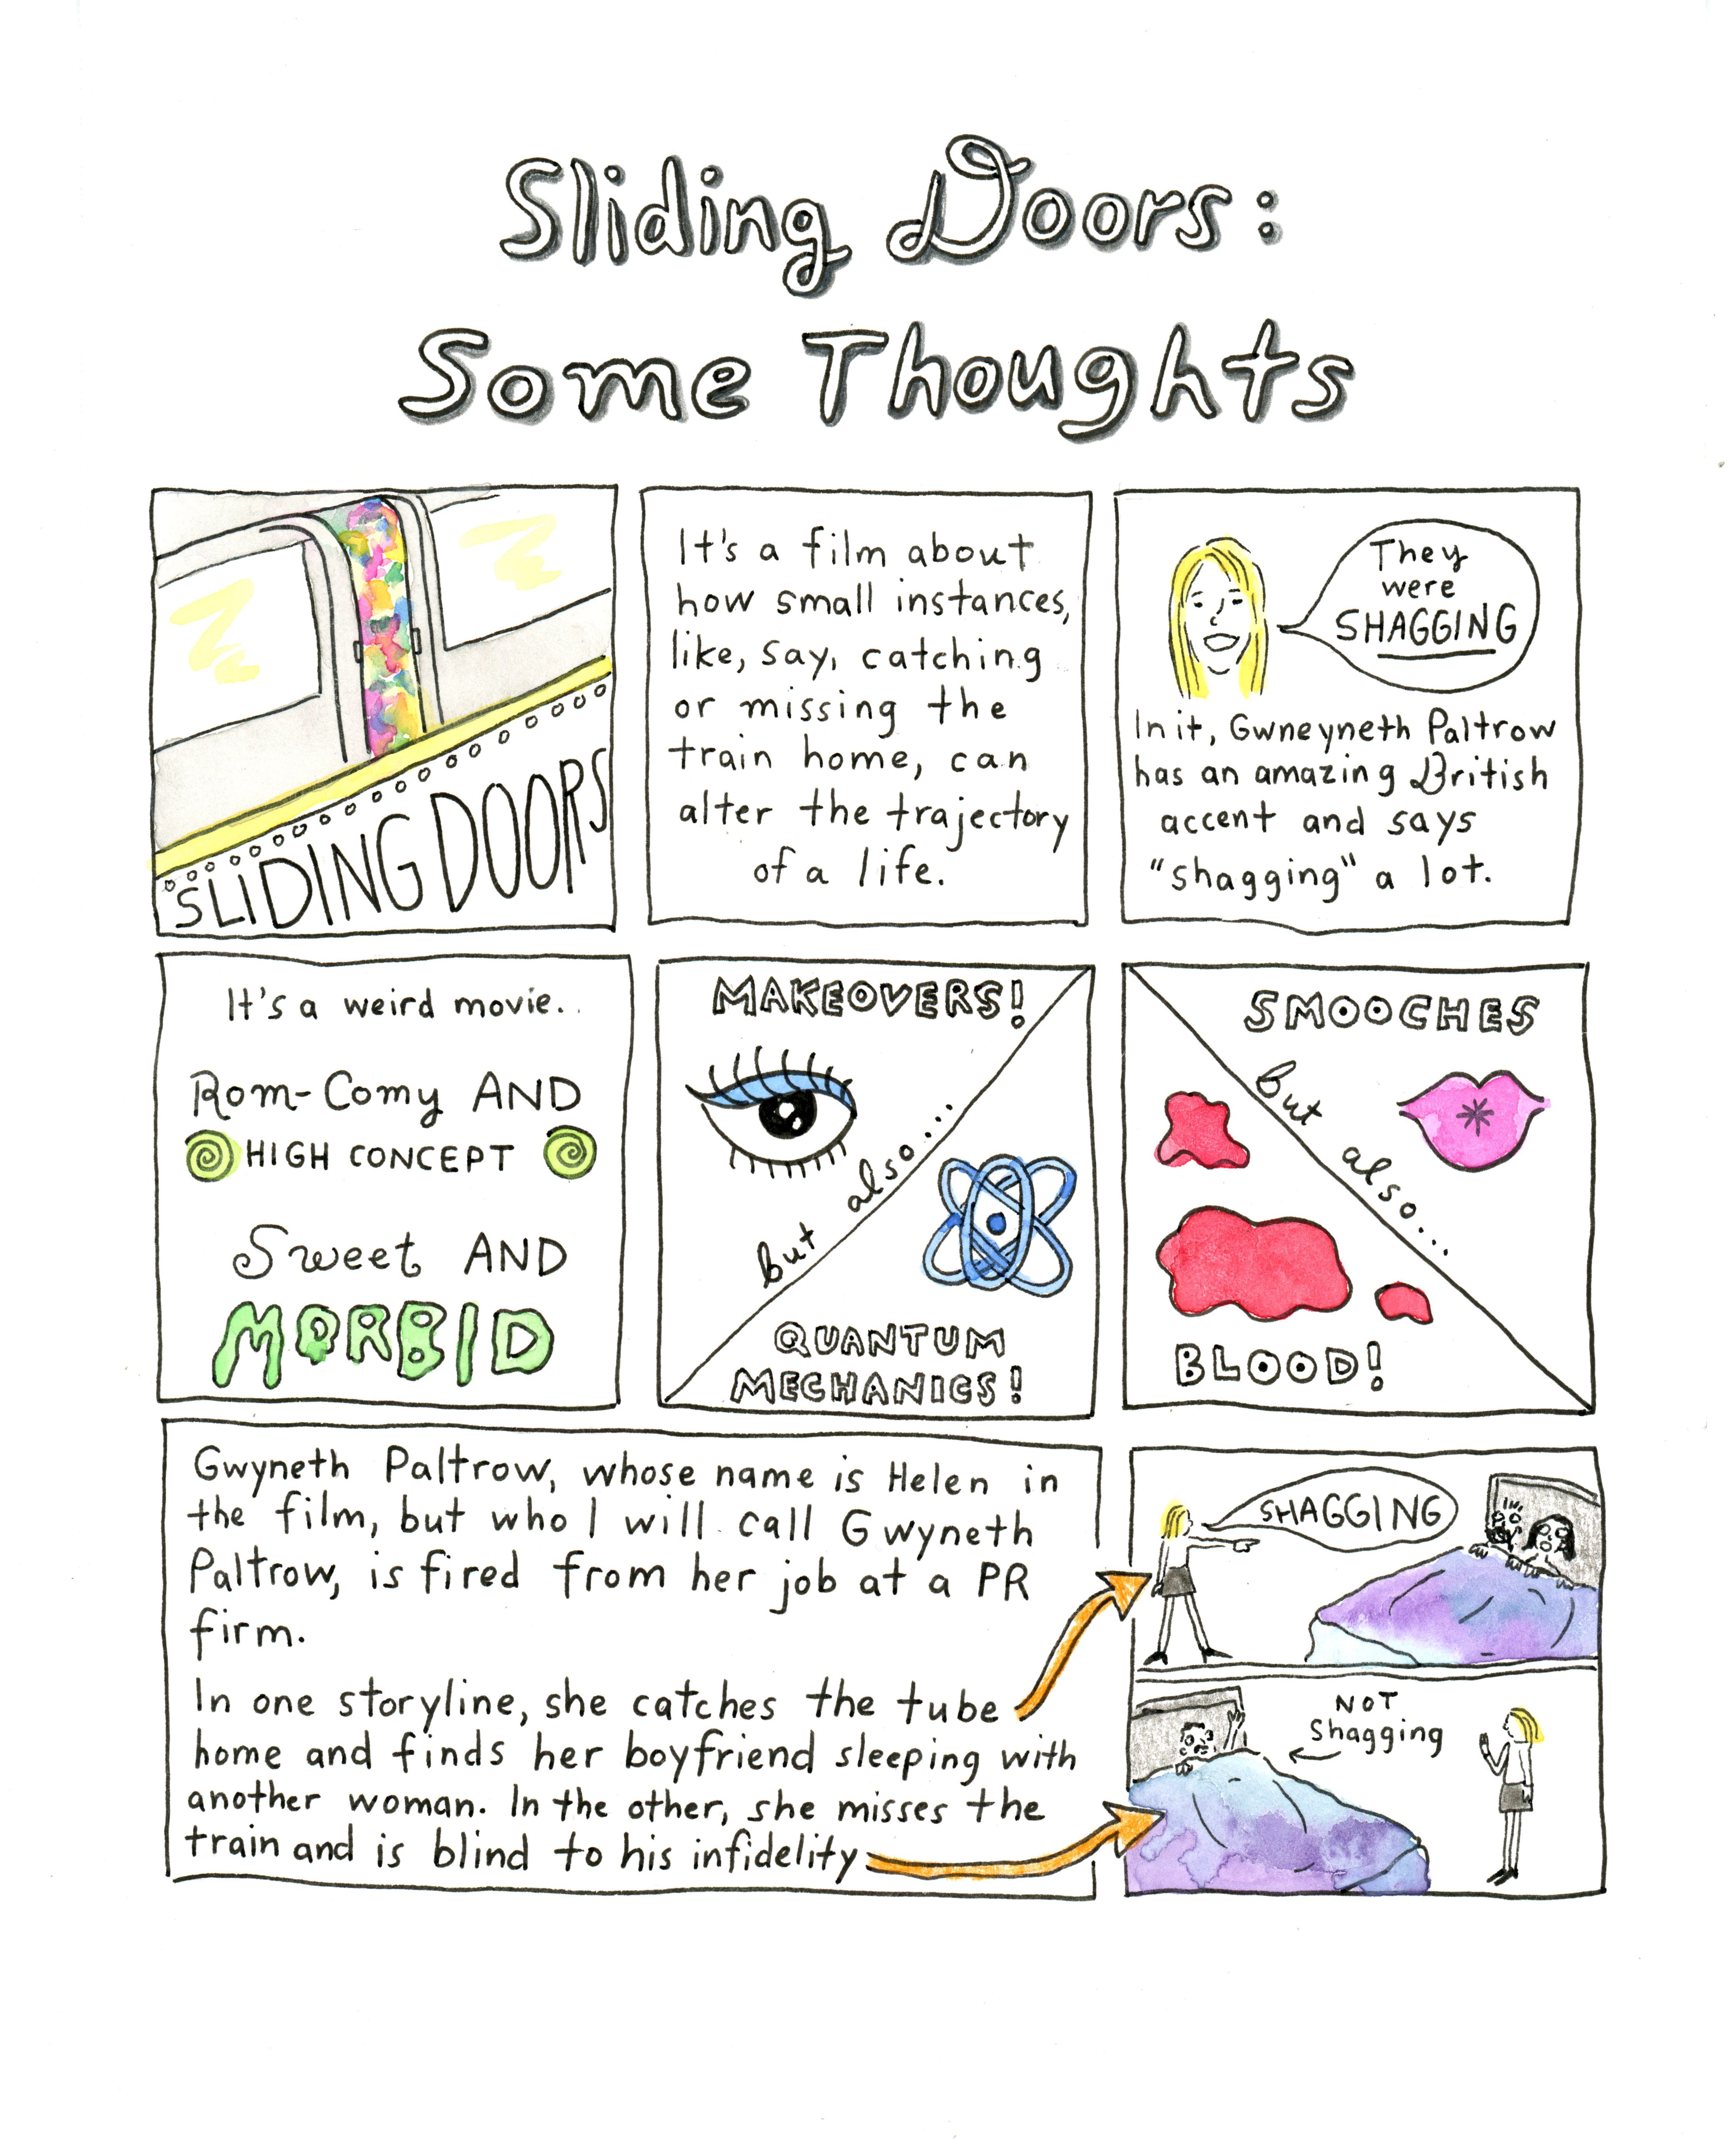 Sliding Doors:
Some Thoughts
SLIDING DOORS
It's a film about
how small instances,
like, say, catching
or missing the
train home, can
alter the trajectory
of a life.
They
were
SHAGGING
In it, Gwneyneth Paltrow
has an amazing British
accent and says
"shagging" a lot.
It's a weird movie..
Rom-Comy AND
HIGH CONCEPT
Sweet AND
MORBID
MAKEOVERS!
but also...
QUANTUM
MECHANICS!
SMOOCHES
but also...
BLOOD!
Gwyneth Paltrow, whose name is Helen in
the film, but who I will call Gwyneth
Paltrow, is fired from her job at a PR
firm.
In one storyline, she catches the tube
home and finds her boyfriend sleeping with
another woman. In the other, she misses the
train and is blind to his infidelity
SHAGGING
NOT
Shagging